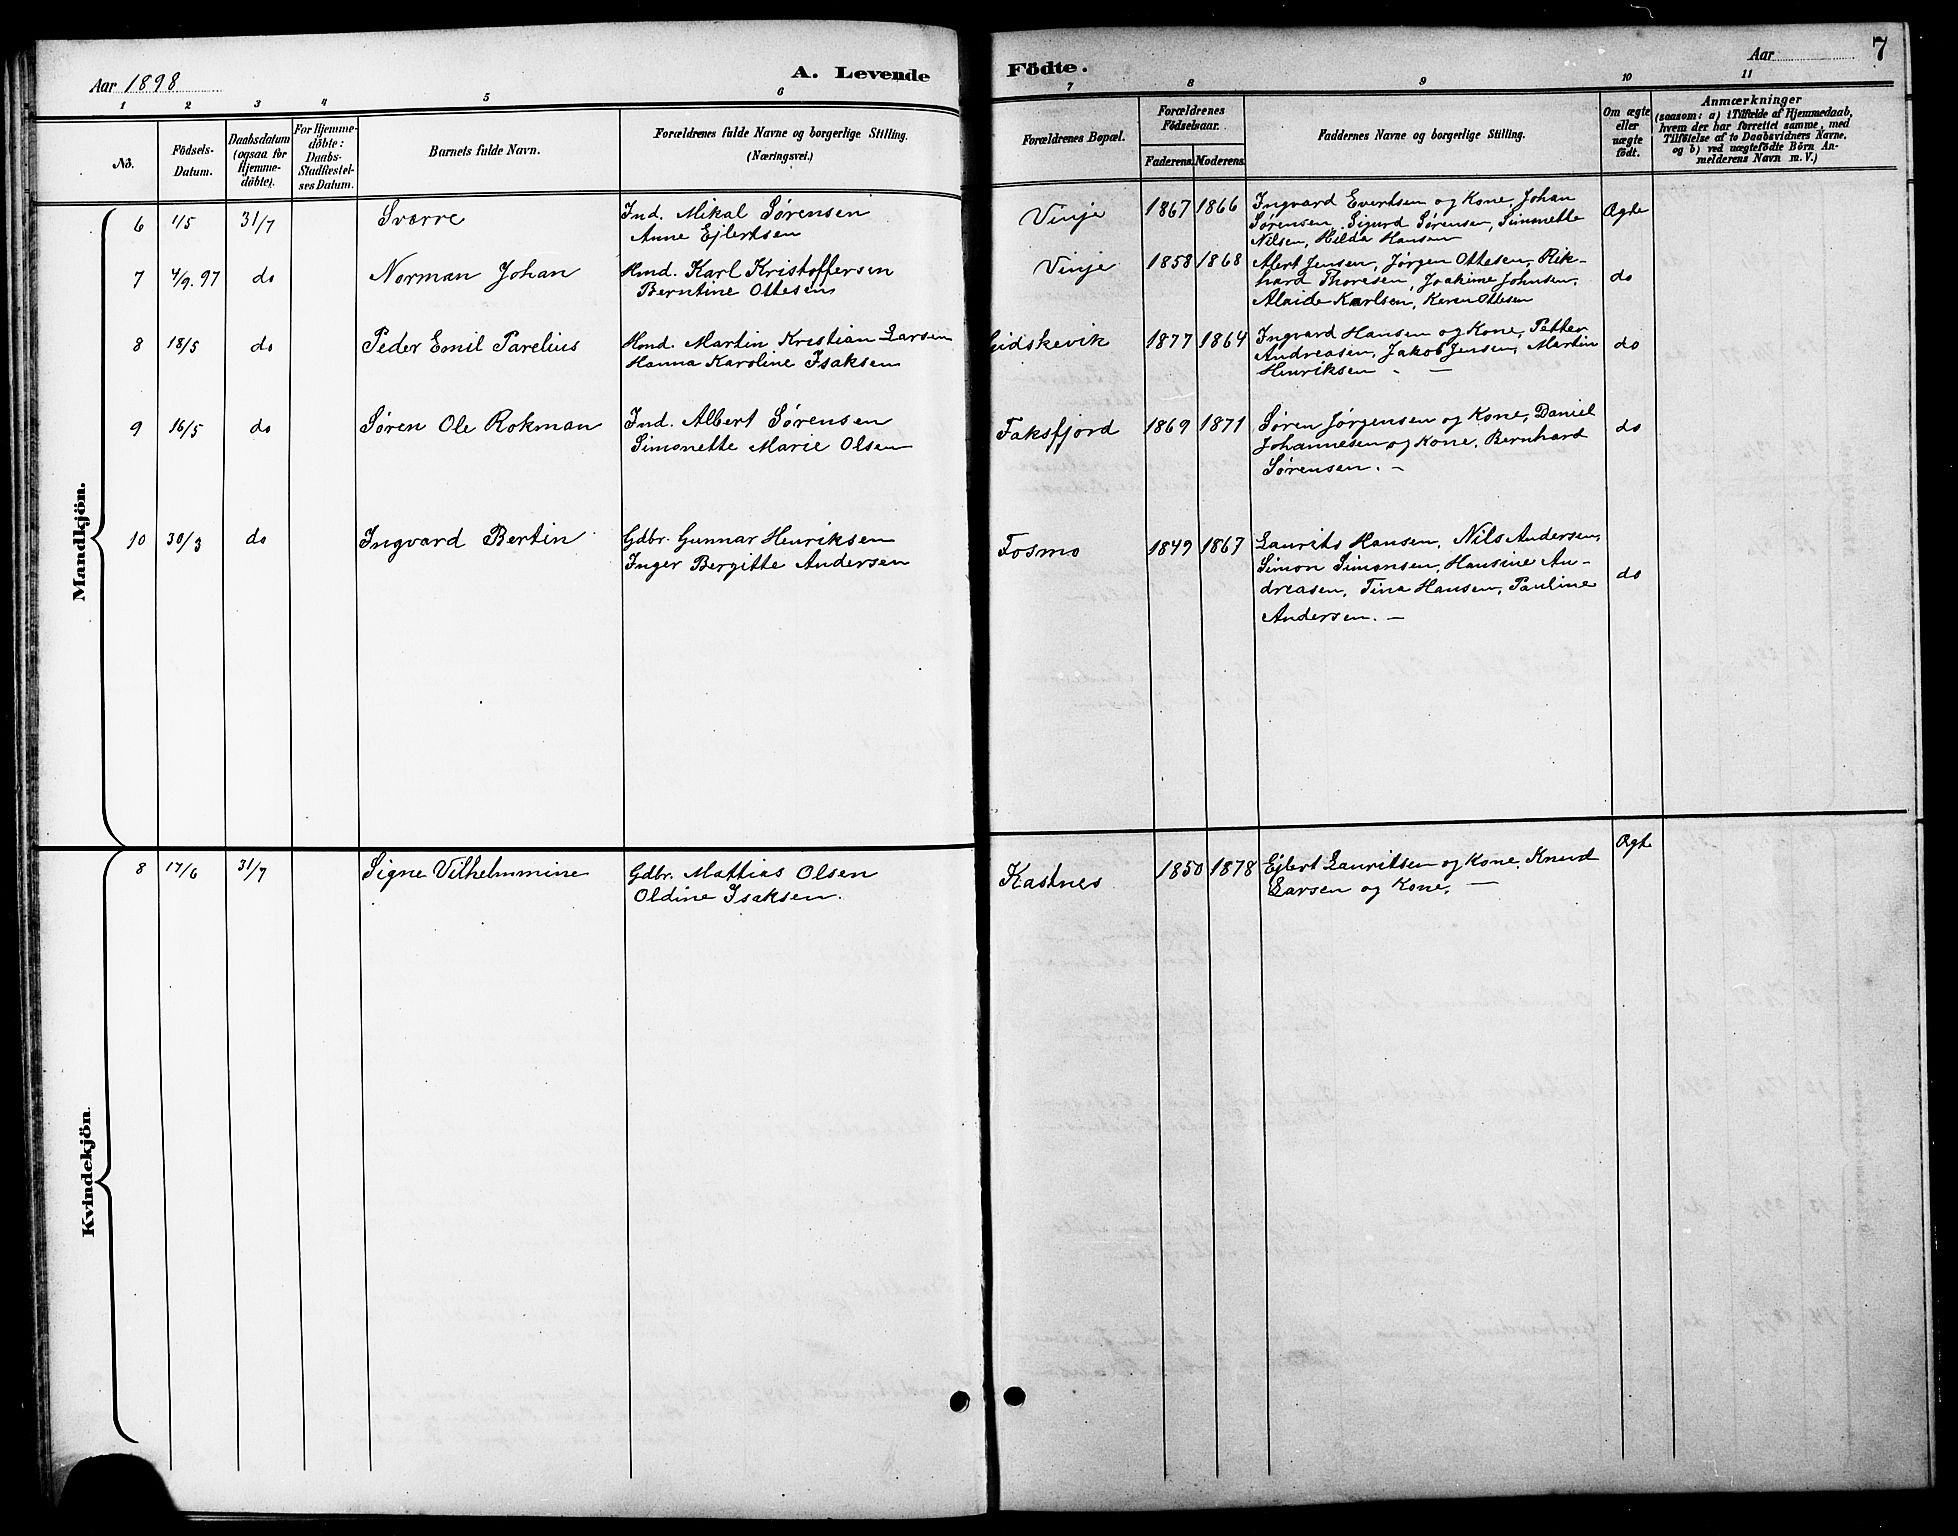 Aar 1898
A. Levende
Födte.
Aar
7
1 2 3 4 5 6 7 8 9 10 11
No.
Födsels-
Datum.
Daabsdatum
(ogsaa for
Hjemme-
døbte).
For Hjemme-
døbte:
Daabs-
Stadfæstel-
ses Datum.
Barnets fulde Navn.
Forældrenes fulde Navne og borgerlige Stilling.
(Næringsvei.)
Forældrenes Bopæl.
Forældrenes
Födselsaar.
Faderens. Moderens.
Faddernes Navne og borgerlige Stilling.
Om ægte
eller
uægte
født.
Anmærkninger
(saasom: a) i Tilfælde af Hjemmedaab,
hvem der har forrettet samme, med
Tilföielse af to Daabsvidners Navne.
og b) ved uægtefödte Börn An-
melderens Navn m. V.)
Mandkjön.
6 1/5 31/7 Sverre Ind. Mikal Sørensen
Anne Ejlertsen
Vinje 1867 1866 Ingvard Evertsen og Kone, Johan
Sørensen, Sigurd Sørensen, Simmette
Nilsen, Hilda Hansen
Ægte
7 4/9.97 do Norman Johan Hmd. Karl Kristoffersen
Berntine Ottesen
Vinje 1858 1868 Alert Jensen, Jørgen Ottesen, Rik-
hard Thoresen, Joakime Johnsen,
Alaide Karlsen, Karen Ottesen
do
8 18/5 do Peder Emil Parelius Hmd. Martin Kristian Larsen
Hanna Karoline Isaksen
Gidskevik 1877 1864 Ingvard Hansen og Kone, Petter
Andreasen, Jakob Jensen, Martin
Henriksen. —
do
9 16/5 do Søren Ole Rokman Ind. Albert Sørensen
Simonette Marie Olsen
Faksfjord 1869 1871 Søren Jørgensen og Kone, Daniel
Johannesen og Kone, Bernhard
Sørensen. —
do
10 30/3 do Ingvard Bertin Gdbr. Gunnar Henriksen
Inger Bergitte Andersen
Fosmo 1849 1867 Laurits Hansen, Nils Andersen,
Simon Simonsen, Hansine An-
dreasen, Tina Hansen, Pauline
Andersen. —
do
Kvindekjön.
8 17/6 31/7 Signe Vilhelmmine Gdbr. Mattias Olsen
Oldine Isaksen.
Kastnes 1850 1878 Ejlert Lauritsen og Kone, Knud
Larsen og Kone. —
Ægte